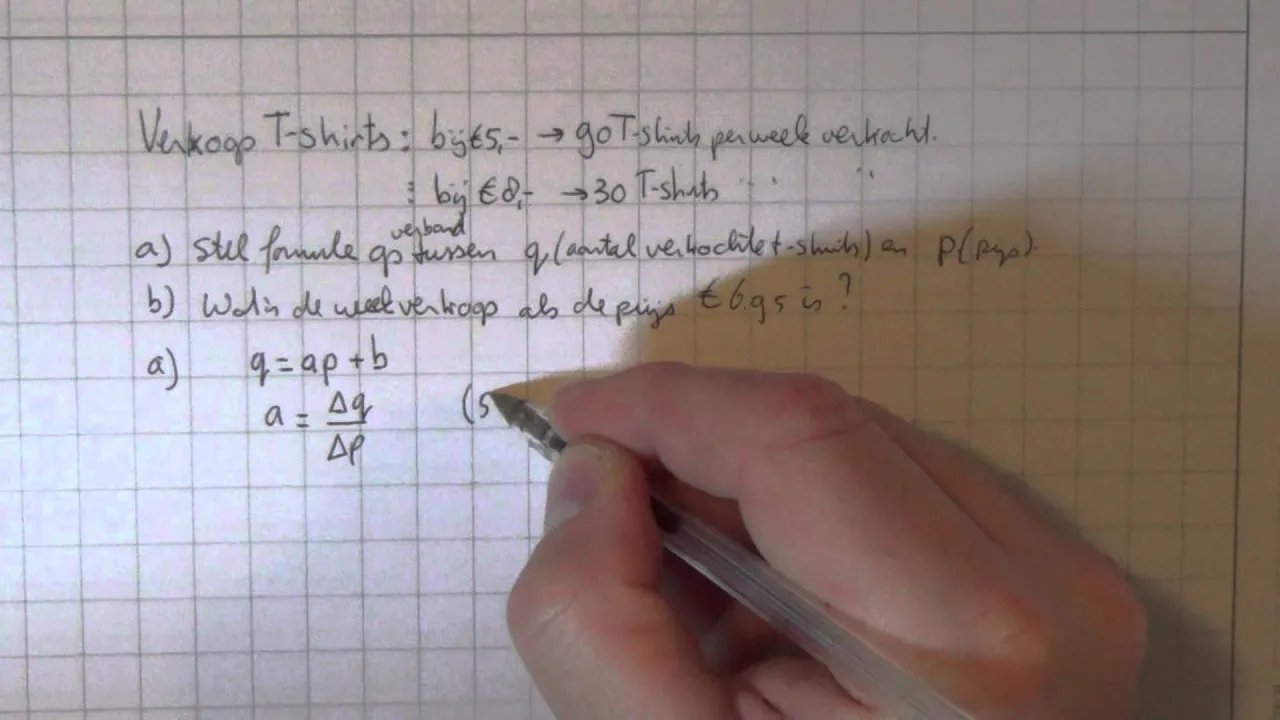 Verkoop T-shirts : bij €5,- → 90 T-shirts per week verkocht.
: bij €8,- → 30 T-shirts " "
verband
a) Stel formule op tussen q (aantal verkochte t-shirts) en p (prijs).
b) Wat is de weekverkoop als de prijs € 6.95 is ?
a) q = ap + b
a = Δq
Δp
(5